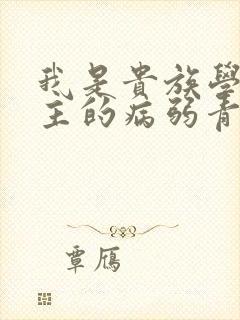 我是貴族學
主的病弱青
覃雁